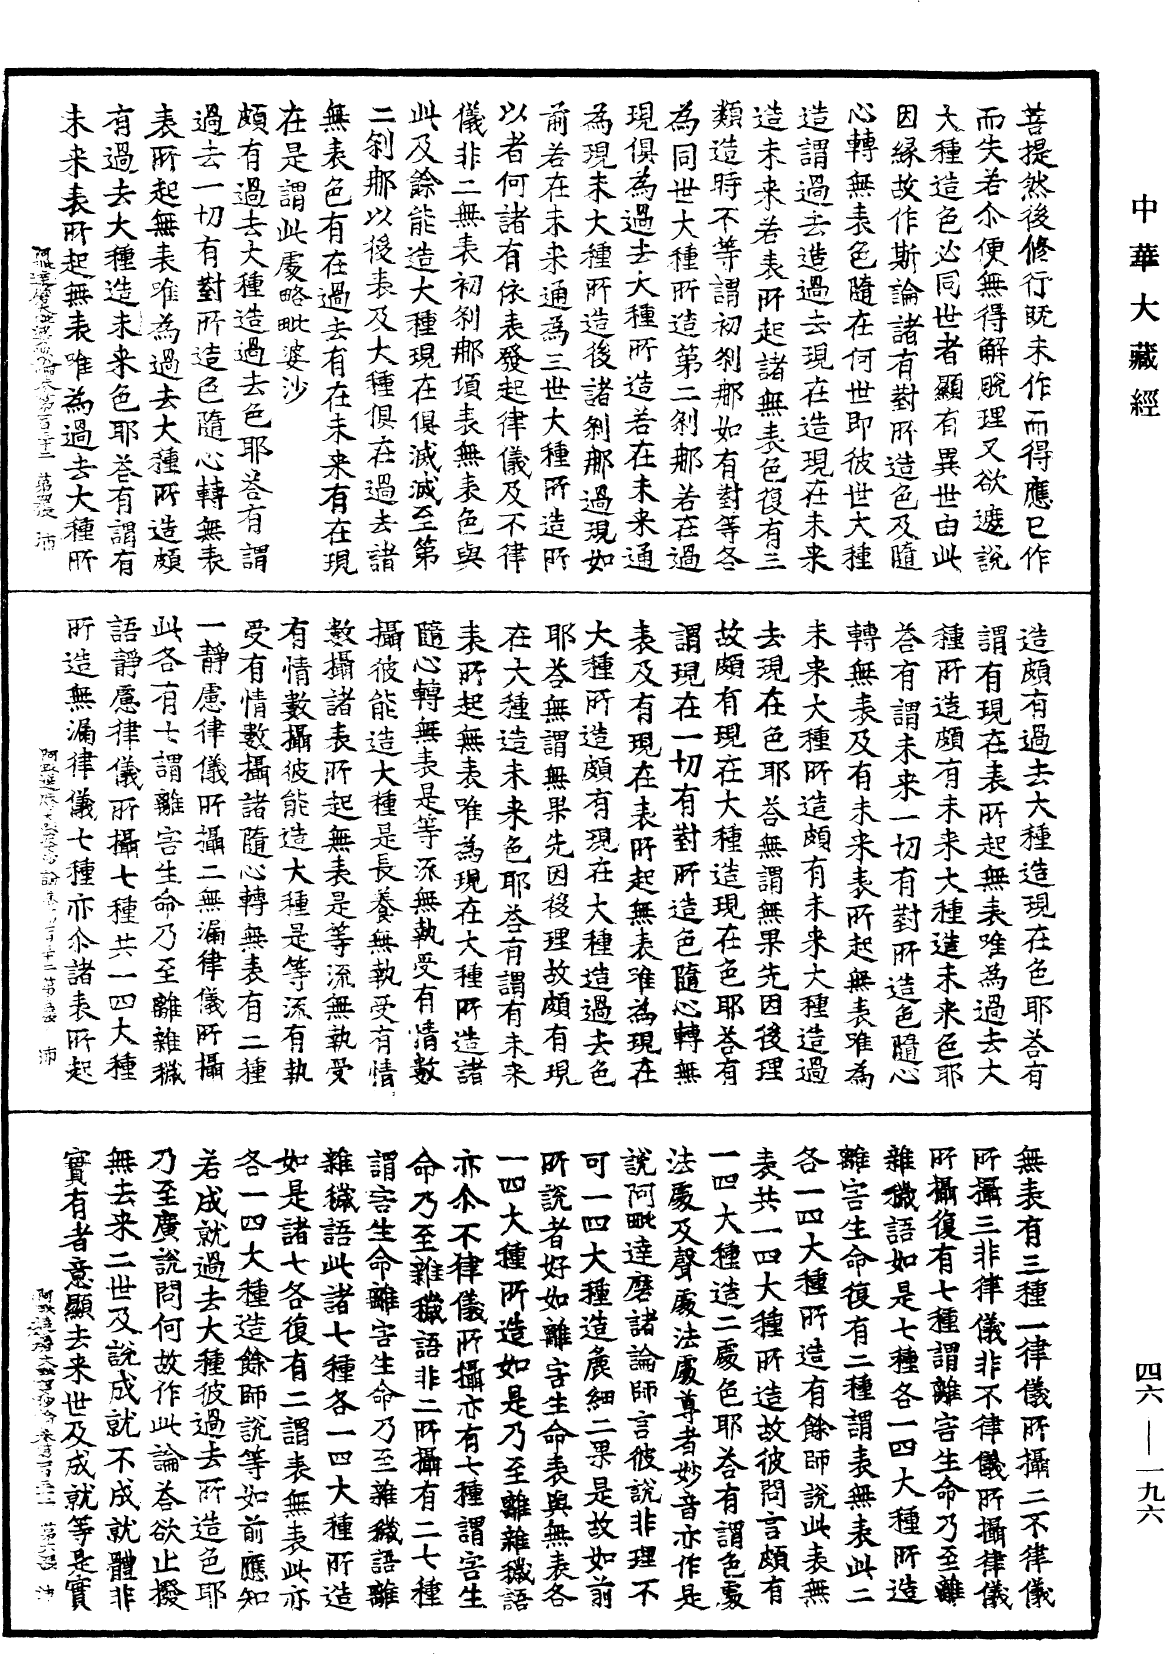 中華大藏經
菩提然後修行既未作而得應已作
而失若尒便無得解脫理又欲遮說
大種造色必同世者顯有異世由此
因緣故作斯論諸有對所造色及隨
心轉無表色隨在何世即彼世大種
造謂過去造過去現在造現在未来
造未来若表所起諸無表色復有三
類造時不等謂初刹那如有對等各
為同世大種所造第二刹那若在過
現俱為過去大種所造若在未来通
為現未大種所造後諸刹那過現如
前若在未来通為三世大種所造所
以者何諸有依表發起律儀及不律
儀非二無表初刹那頃表無表色與
此及餘能造大種現在俱滅滅至第
二刹那以後表及大種俱在過去諸
無表色有在過去有在未来有在現
在是謂此處略毗婆沙
頗有過去大種造過去色耶荅有謂
過去一切有對所造色隨心轉無表
表所起無表唯為過去大種所造頗
有過去大種造未来色耶荅有謂有
未来表所起無表唯為過去大種所
造頗有過去大種造現在色耶荅有
謂有現在表所起無表唯為過去大
種所造頗有未来大種造未来色耶
荅有謂未来一切有對所造色隨心
轉無表及有未来表所起無表唯為
未来大種所造頗有未来大種造過
去現在色耶荅無謂無果先因後理
故頗有現在大種造現在色耶荅有
謂現在一切有對所造色隨心轉無
表及有現在表所起無表唯為現在
大種所造頗有現在大種造過去色
耶荅無謂無果先因後理故頗有現
在大種造未来色耶荅有謂有未来
表所起無表唯為現在大種所造諸
隨心轉無表是等流無執受有情數
攝彼能造大種是長養無執受有情
數攝諸表所起無表是等流無執受
有情數攝彼能造大種是等流有執
受有情數攝諸隨心轉無表有二種
一靜慮律儀所攝二無漏律儀所攝
此各有七謂離害生命乃至離雜穢
語靜慮律儀所攝七種共一四大種
所造無漏律儀七種亦尒諸表所起
無表有三種一律儀所攝二不律儀
所攝三非律儀非不律儀所攝律儀
所攝復有七種謂離害生命乃至離
雜穢語如是七種各一四大種所造
離害生命復有二種謂表無表此二
各一四大種所造有餘師說此表無
表共一四大種所造故彼問言頗有
一四大種造二處色耶荅有謂色處
法處及聲處法處尊者妙音亦作是
說阿毗達磨諸論師言彼說非理不
可一四大種造麁細二果是故如前
所說者好如離害生命表與無表各
一四大種所造如是乃至離雜穢語
亦尒不律儀所攝亦有七種謂害生
命乃至雜穢語非二所攝有二七種
謂害生命離害生命乃至雜穢語離
雜穢語此諸七種各一四大種所造
如是諸七各復有二謂表無表此亦
各一四大種造餘師說等如前應知
若成就過去大種彼過去所造色耶
乃至廣說問何故作此論荅欲止撥
無去来二世及說成就不成就體非
實有者意顯去来世及成就等是實
四六—一九六